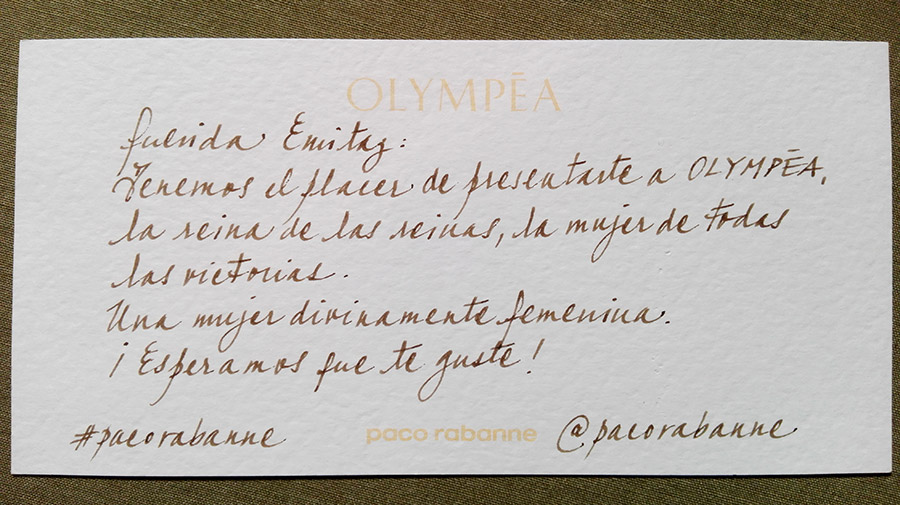 OLYMPĒA
Querida Emitaz:
Tenemos el placer de presentarte a OLYMPĒA,
la reina de las reinas, la mujer de todas
las victorias.
Una mujer divinamente femenina.
¡Esperamos que te guste!
#pacorabanne paco rabanne @pacorabanne